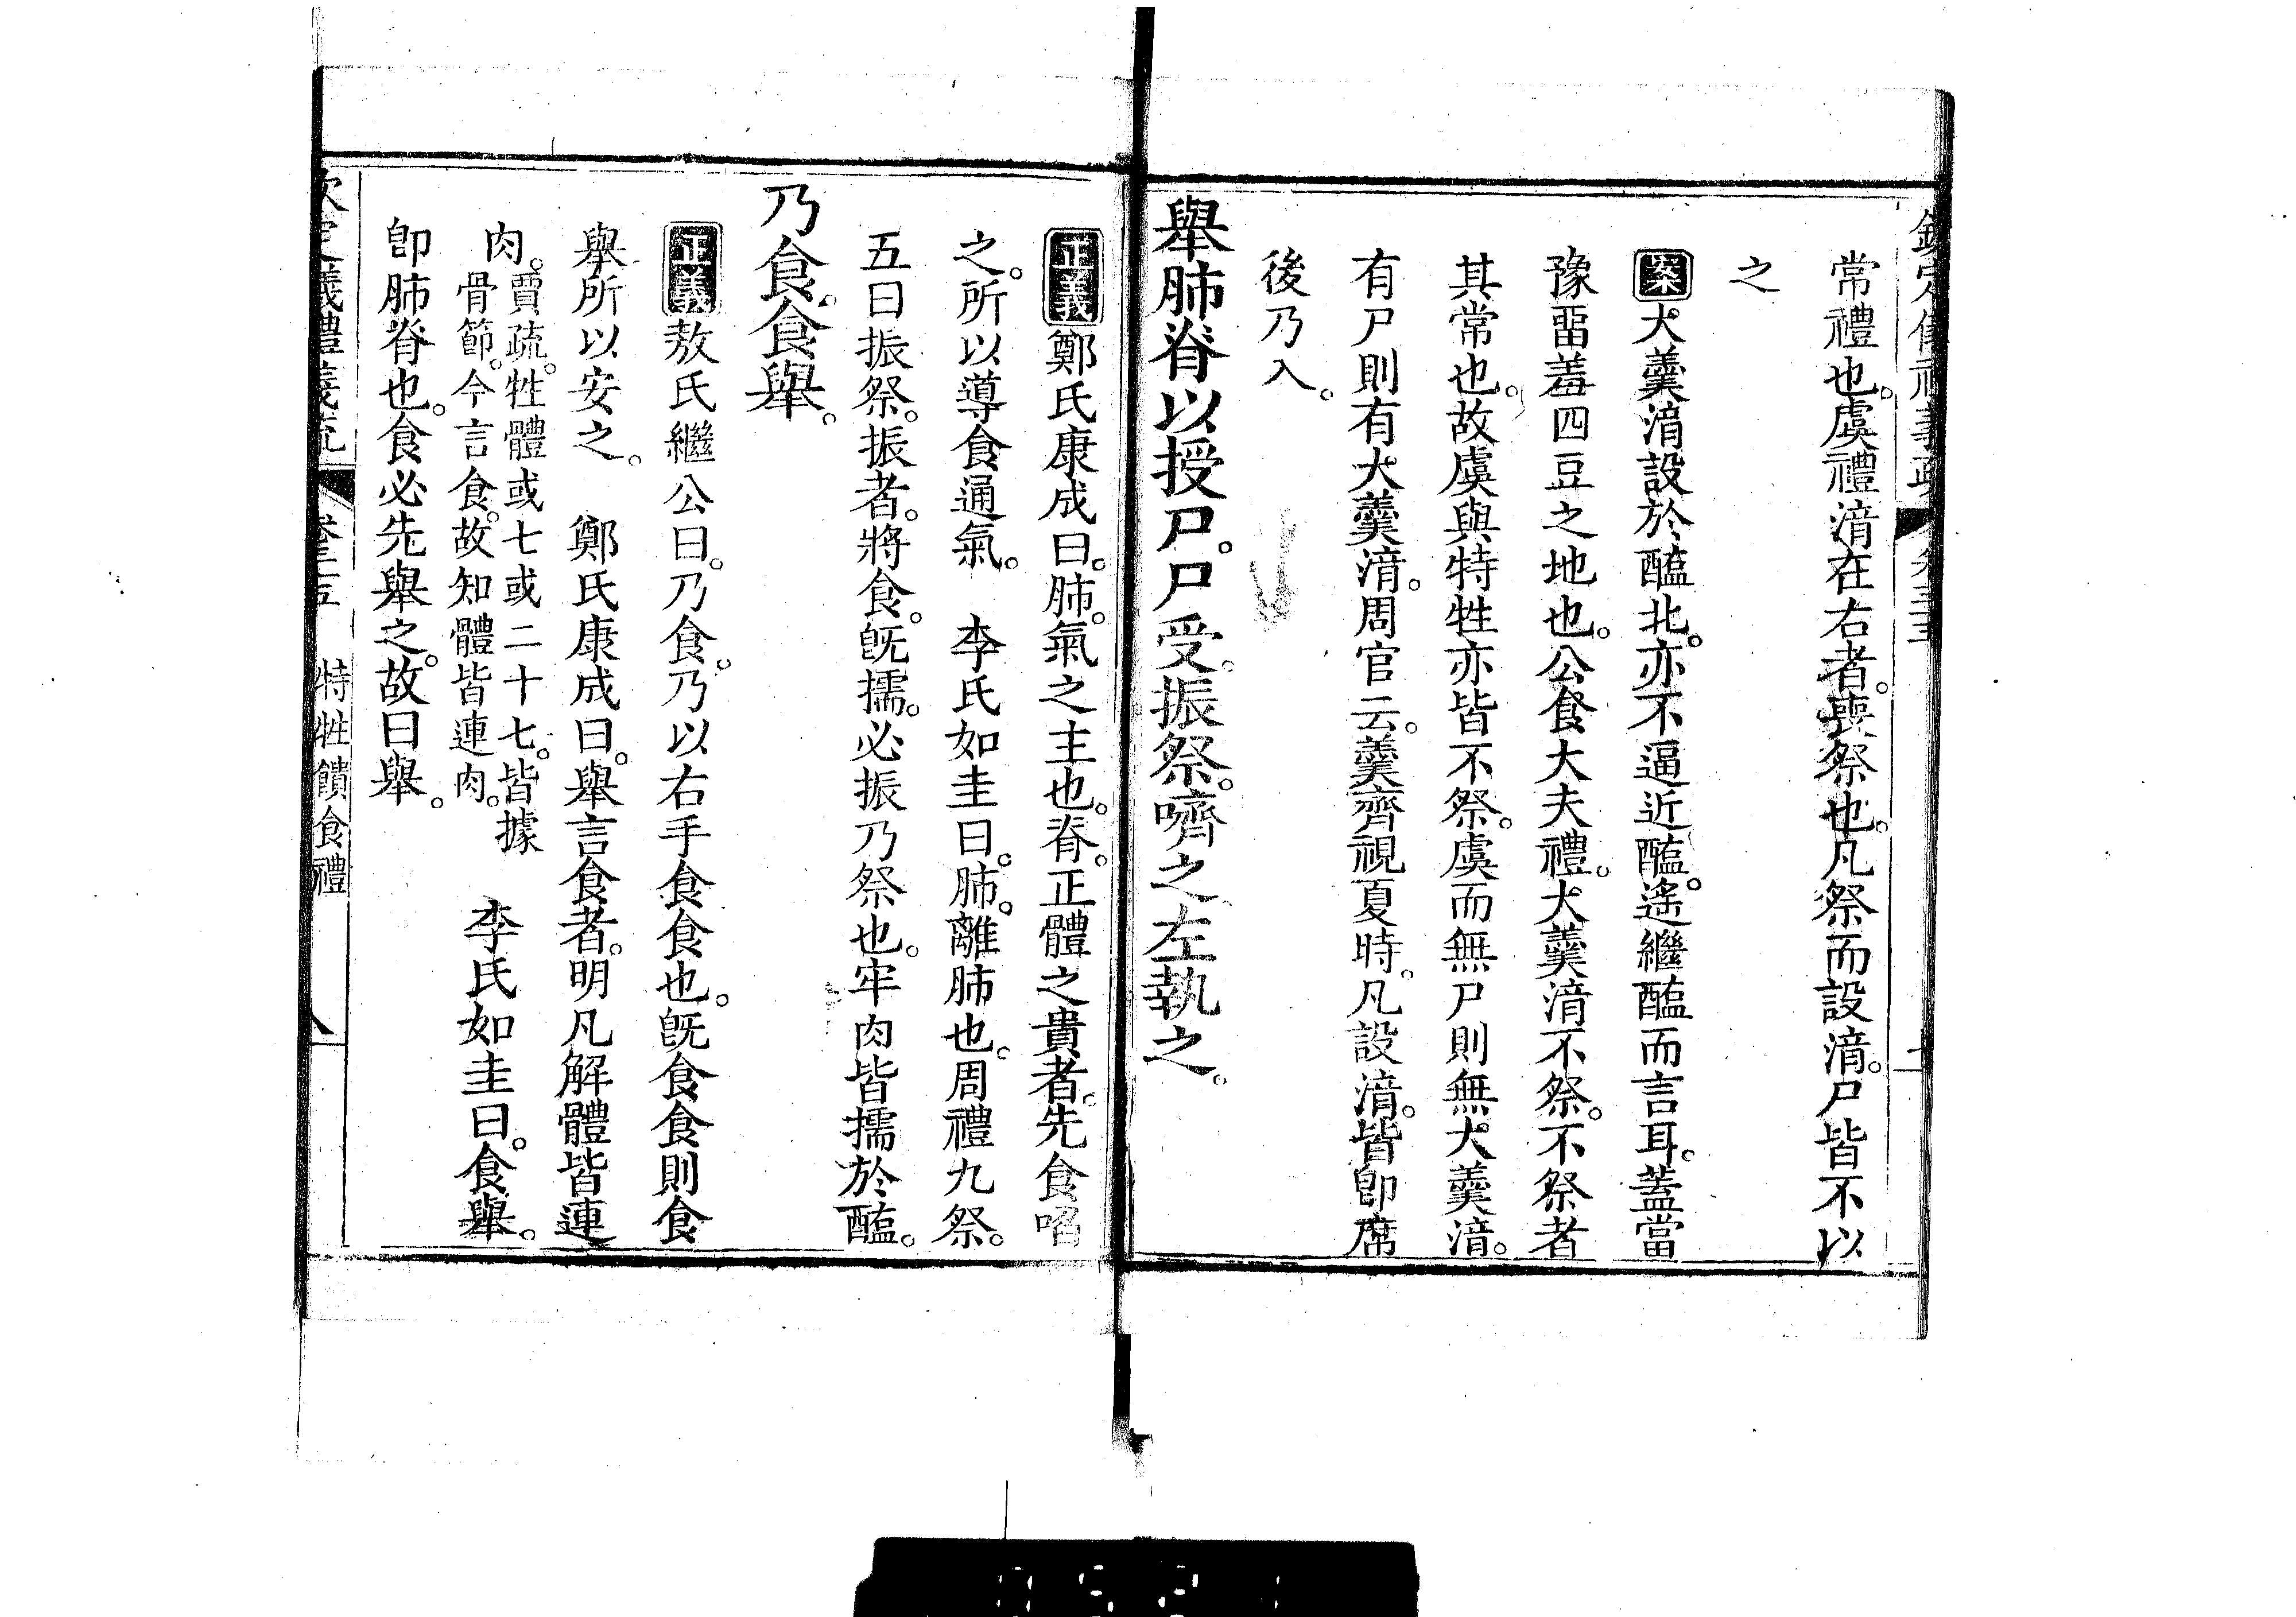 常禮也。虞禮湇在右者。喪祭也。凡祭而設湇。尸皆不以
之
案大羹湇設於醢北。亦不逼近醢。遙繼醢而言耳。蓋當
豫畱羞四豆之地也。公食大夫禮。大羹湇不祭。不祭者
其常也。故虞與特牲亦皆不祭。虞而無尸則無大羹湇。
有尸則有大羹湇。周官云。羹齊視夏時。凡設湇。皆卽席
後乃入。
舉肺脊以授尸。尸受。振祭。嚌之左執之。
正義鄭氏康成曰。肺。氣之主也。脊。正體之貴者。先食啗
之。所以導食通氣。 李氏如圭曰。肺。離肺也。周禮九祭。
五曰振祭。振者。將食。旣擩。必振乃祭也。牢肉皆擩於醢。
乃食。食舉。
正義敖氏繼公曰。乃食。乃以右手食食也。旣食食則食
舉所以安之。 鄭氏康成曰。舉言食者。明凡解體皆連
肉。賈疏。牲體或七或二十七。皆據骨節。今言食。故知體皆連肉。 李氏如圭曰。食舉。
卽肺脊也。食必先舉之。故曰舉。
特牲饋食禮